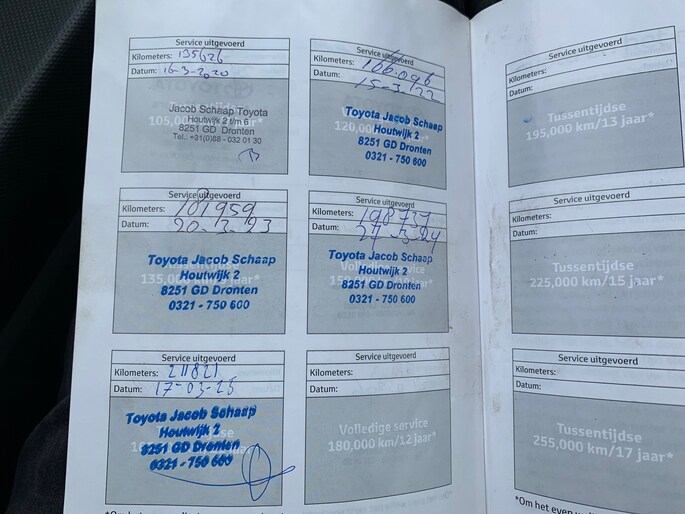 Service uitgevoerd
Kilometers: 135626
Datum: 16-3-2020
105,000 km/
Jacob Schaap Toyota
Houtwijk 2 t/m 6
8251 GD Dronten
Tel.: +31(0)88 - 032 01 30
Service uitgevoerd
Kilometers: 166.096
Datum: 15-3-'22
120,000
Toyota Jacob Schaap
Houtwijk 2
8251 GD Dronten
0321 - 750 600
Kilometers:
Datum:
Tussentijdse
195,000 km/13 jaar*
Service uitgevoerd
Kilometers: 181959
Datum: 20-3-23
135,000 km/9 jaar*
Toyota Jacob Schaap
Houtwijk 2
8251 GD Dronten
0321 - 750 600
Service uitgevoerd
Kilometers: 198737
Datum: 27-3-24
Volledige service
Toyota Jacob Schaap
Houtwijk 2
8251 GD Dronten
0321 - 750 600
Service uitgevoerd
Kilometers:
Datum:
Tussentijdse
225,000 km/15 jaar*
Service uitgevoerd
Kilometers: 211821
Datum: 17-03-25
Toyota Jacob Schaap
Houtwijk 2
8251 GD Dronten
0321 - 750 600
Service uitgevoerd
Kilometers:
Datum:
Volledige service
180,000 km/12 jaar*
Service uitgevoerd
Kilometers:
Datum:
Tussentijdse
255,000 km/17 jaar*
*Om het even